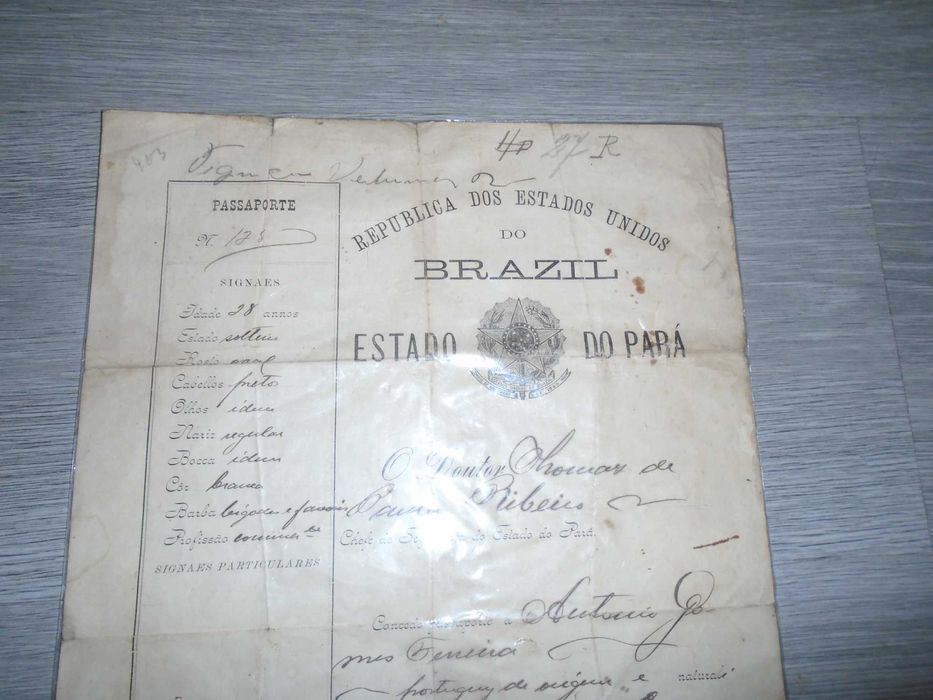 403
4P 27 R
PASSAPORTE
N. 178
SIGNAES
Idade 28 annos
Estado solteiro
Rosto oval
Cabellos pretos
Olhos idem
Nariz regular
Bocca idem
Côr branca
Barba bigode e favoris
Profissão commercio
SIGNAES PARTICULARES
REPUBLICA DOS ESTADOS UNIDOS
DO
BRAZIL
ESTADO DO PARÁ
O Doutor Thomaz de
Paula Ribeiro
Chefe de Segurança do Estado do Pará.
Concedo Passaporte a Antonio Go
mes Ferreira
portuguez de origem e natural